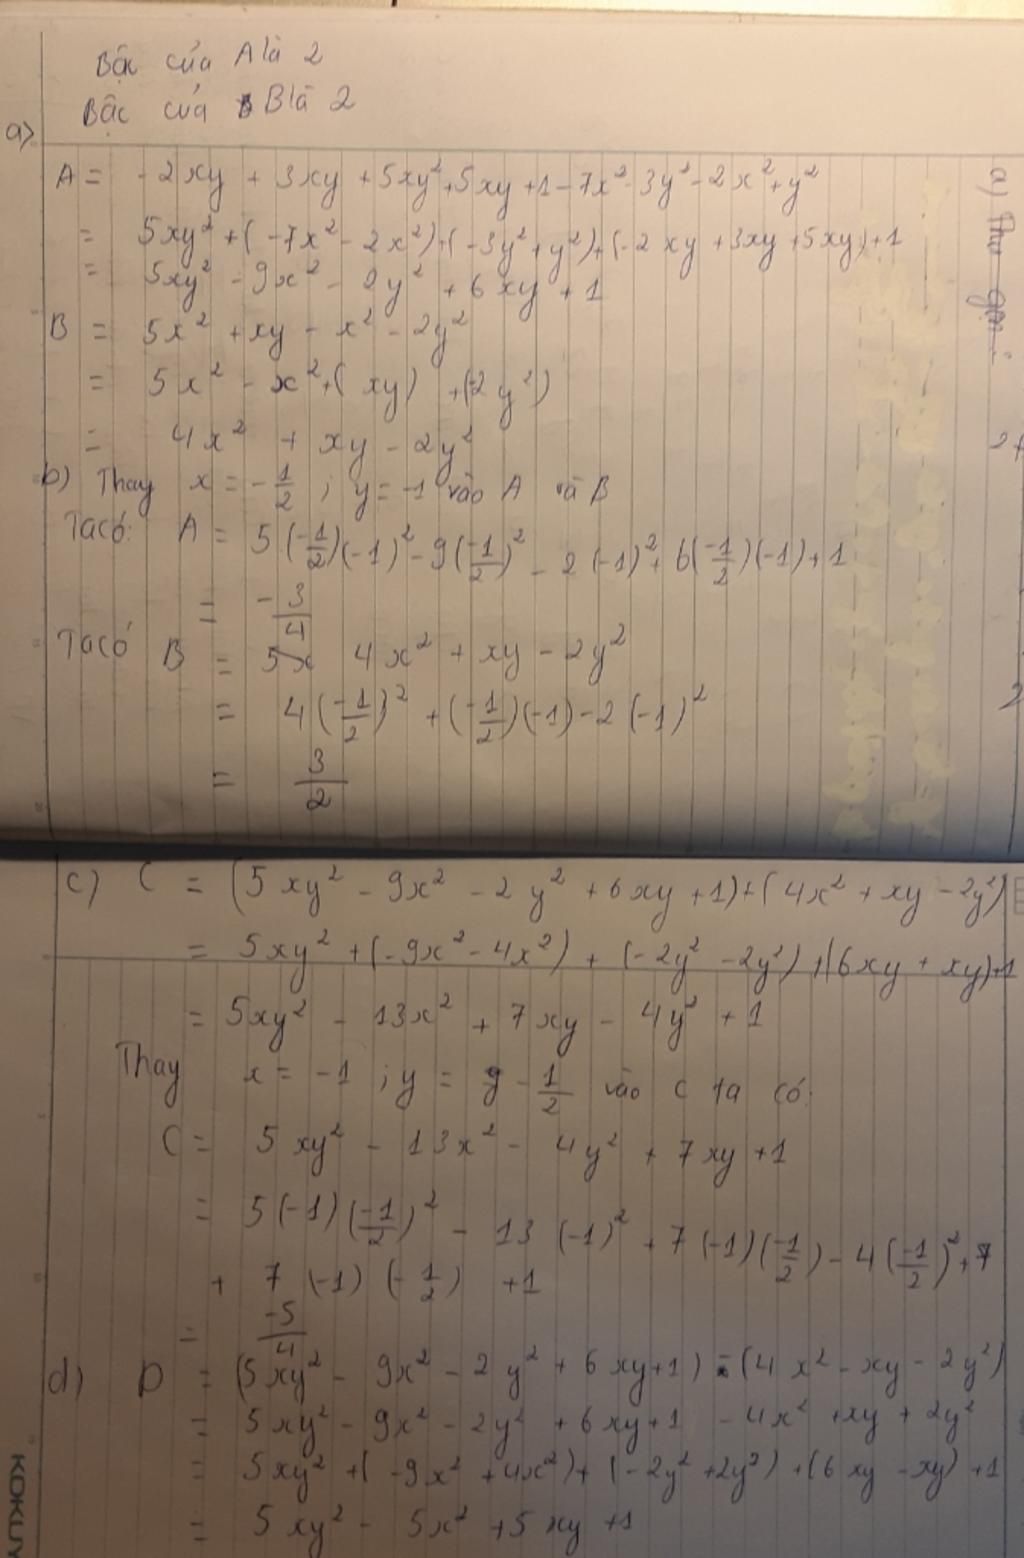 Bậc của A là 2
Bậc của B là 2
a)
A = - 2xy + 3xy + 5xy² + 5xy + 1 - 7x² - 3y² - 2x² + y²
= 5xy² + ( -7x² - 2x² ) + ( -3y² + y² ) + ( -2xy + 3xy + 5xy ) + 1
= 5xy² - 9x² - 2y² + 6xy + 1
B = 5x² + xy - x² - 2y²
= 5x² - x² + ( xy ) + (-2y²)
= 4x² + xy - 2y²
b) Thay x = -1/2 ; y = -1 vào A và B
Ta có: A = 5(-1/2)(-1)² - 9(-1/2)² - 2(-1)² + 6(-1/2)(-1) + 1
= -3/4
Ta có B = 5x 4x² + xy - 2y²
= 4(-1/2)² + (-1/2)(-1) - 2(-1)²
= 3/2
a) Thu gọn:
c) C = (5xy² - 9x² - 2y² + 6xy + 1) + (4x² + xy - 2y²)
= 5xy² + (-9x² - 4x²) + (-2y² - 2y²) + (6xy + xy) + 1
= 5xy² - 13x² + 7xy - 4y² + 1
Thay x = -1 ; y = -1/2 vào C ta có:
C = 5xy² - 13x² - 4y² + 7xy + 1
= 5(-1)(-1/2)² - 13(-1)² + 7(-1)(-1/2) - 4(-1/2)² + 7
+ 7(-1)(-1/2) + 1
= -5/4
d) D = (5xy² - 9x² - 2y² + 6xy + 1) - (4x² - xy - 2y²)
= 5xy² - 9x² - 2y² + 6xy + 1 - 4x² + xy + 2y²
= 5xy² + ( -9x² + 4x²) + (-2y² + 2y²) + (6xy - xy) + 1
= 5xy² - 5x² + 5xy + 1
KOKUY